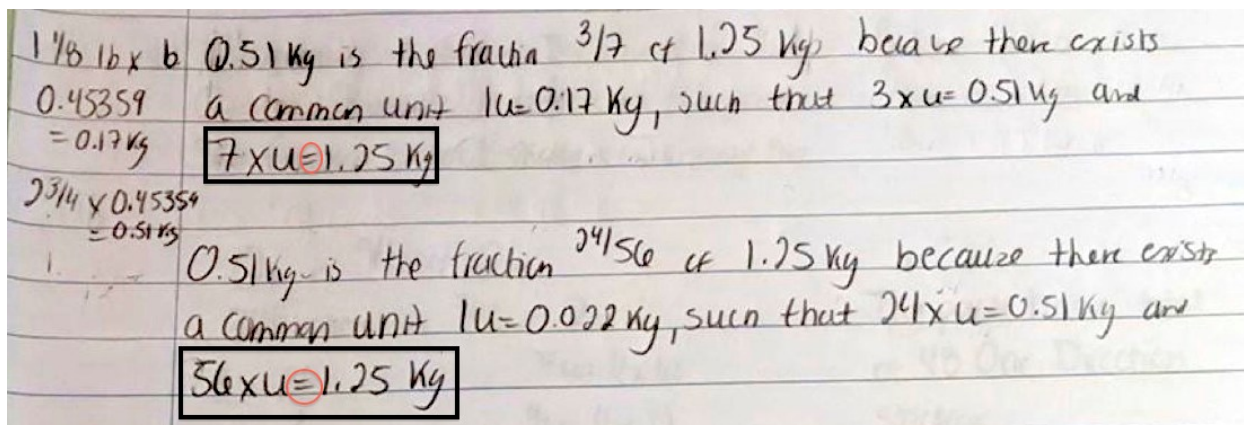 1 1/8 lb x b
0.45359
= 0.17 Kg
2 3/4 x 0.45359
= 0.51 Kg
1.
0.51 Kg is the fraction 3/7 of 1.25 Kg, because there exists
a common unit 1u=0.17 Kg, such that 3xu=0.51 Kg and
7xu=1.25 Kg
0.51 Kg is the fraction 24/56 of 1.25 Kg because there exists
a common unit 1u=0.022 Kg, such that 24xu=0.51 Kg and
56xu=1.25 Kg